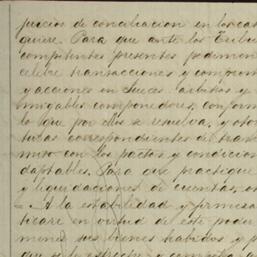 juicios de conciliacion en los cas
quiere. Para que ante los Tribu
competentes presentes pedimen
celebre transacciones y comprom
y acciones en Jueces arbitros y
amigables componedores, conform
lo que por ellos se resuelva, y otor
turas correspondientes de tran
miso con los pactos y condicion
daptables. Para que practique
y liquidaciones de cuentas, 
= A la estabilidad y firmeza
ticare en virtud de este poder
mines sus bienes habidos y p